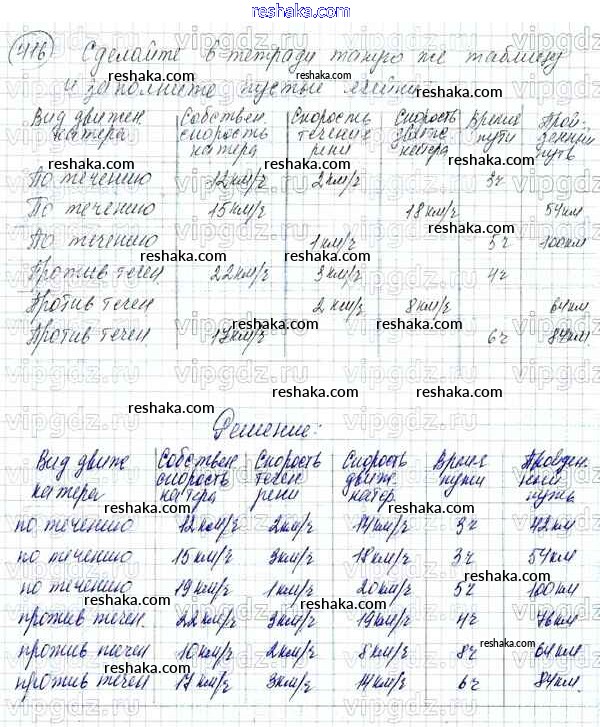 reshaka.ru
416 Сделайте в тетради такую же таблицу
и заполните пустые ячейки.
Вид движен катера | Собствен. скорость катера | Скорость течения реки | Скорость движ. катера | Время пути | Пройденный путь
По течению 12км/ч 2км/ч 3ч
По течению 15км/ч 18км/ч 54км
По течению 1км/ч 5ч 100км
Против течен 22км/ч 3км/ч 4ч
Против течен 2км/ч 8км/ч 64км
Против течен 17км/ч 6ч 84км
Решение:
Вид движ катера | Собствен. скорость катера | Скорость течен. реки | Скорость движ. катер. | Время пути | Пройденный путь
по течению 12км/ч 2км/ч 14км/ч 3ч 42км
по течению 15км/ч 3км/ч 18км/ч 3ч 54км
по течению 19км/ч 1км/ч 20км/ч 5ч 100км
против течен. 22км/ч 3км/ч 19км/ч 4ч 76км
против течен 10км/ч 2км/ч 8км/ч 8ч 64км
против течен 17км/ч 3км/ч 14км/ч 6ч 84км.
reshaka.ru